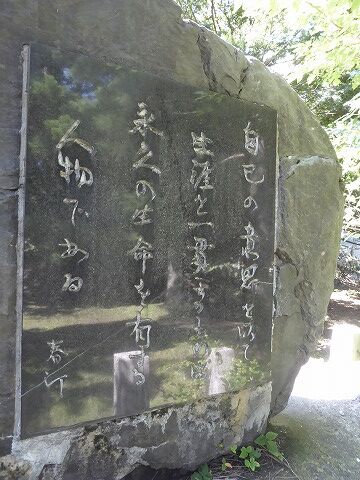 自己の意思を以て
生涯を一貫するものは
永久の生命を有する
人物である
春汀